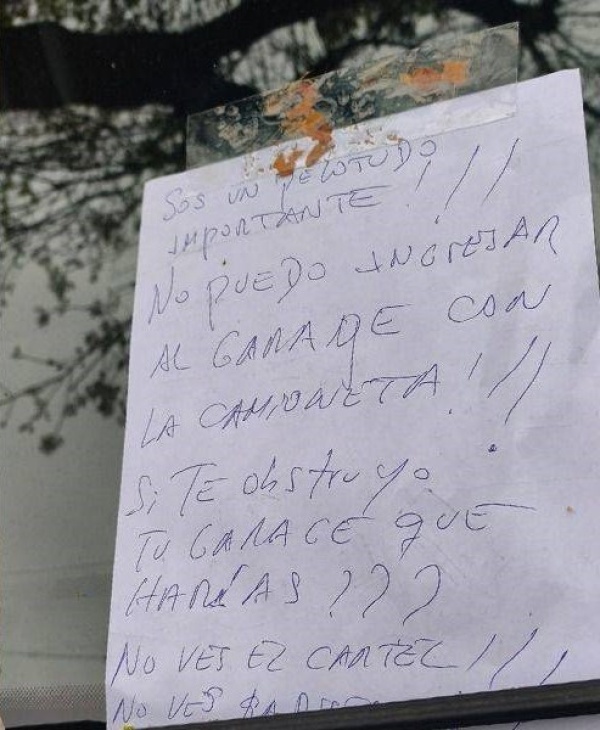 SOS UN PELOTUDO
IMPORTANTE!///
NO PUEDO INGRESAR
AL GARAGE CON
LA CAMIONETA!!!
Si TE obstruyo
TU GARAGE QUE
HARÍAS???
NO VES EL CARTEL///
NO VES